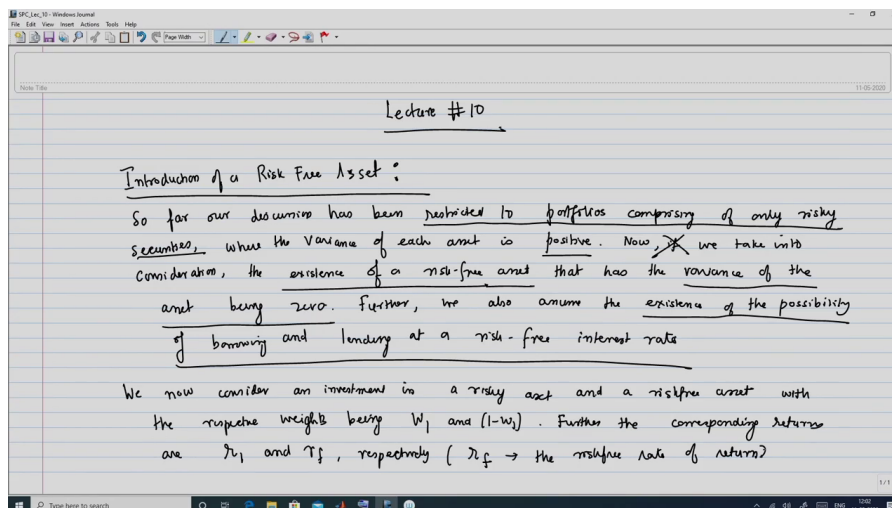 SPC_Lec_10 - Windows Journal
File Edit View Insert Actions Tools Help
Page Width
Note Title
11-05-2020
Lecture #10
Introduction of a Risk Free Asset :
So far our discussion has been restricted to portfolios comprising of only risky
securities, where the variance of each asset is positive. Now, we take into
consideration, the existence of a risk-free asset that has the variance of the
asset being zero. Further, we also assume the existence of the possibility
of borrowing and lending at a risk-free interest rate
We now consider an investment in a risky asset and a riskfree asset with
the respective weights being W₁ and (1-w₁). Further the corresponding returns
are r₁ and r_f, respectively ( r_f → the riskfree rate of return)
1/1
Type here to search
ENG
12:02